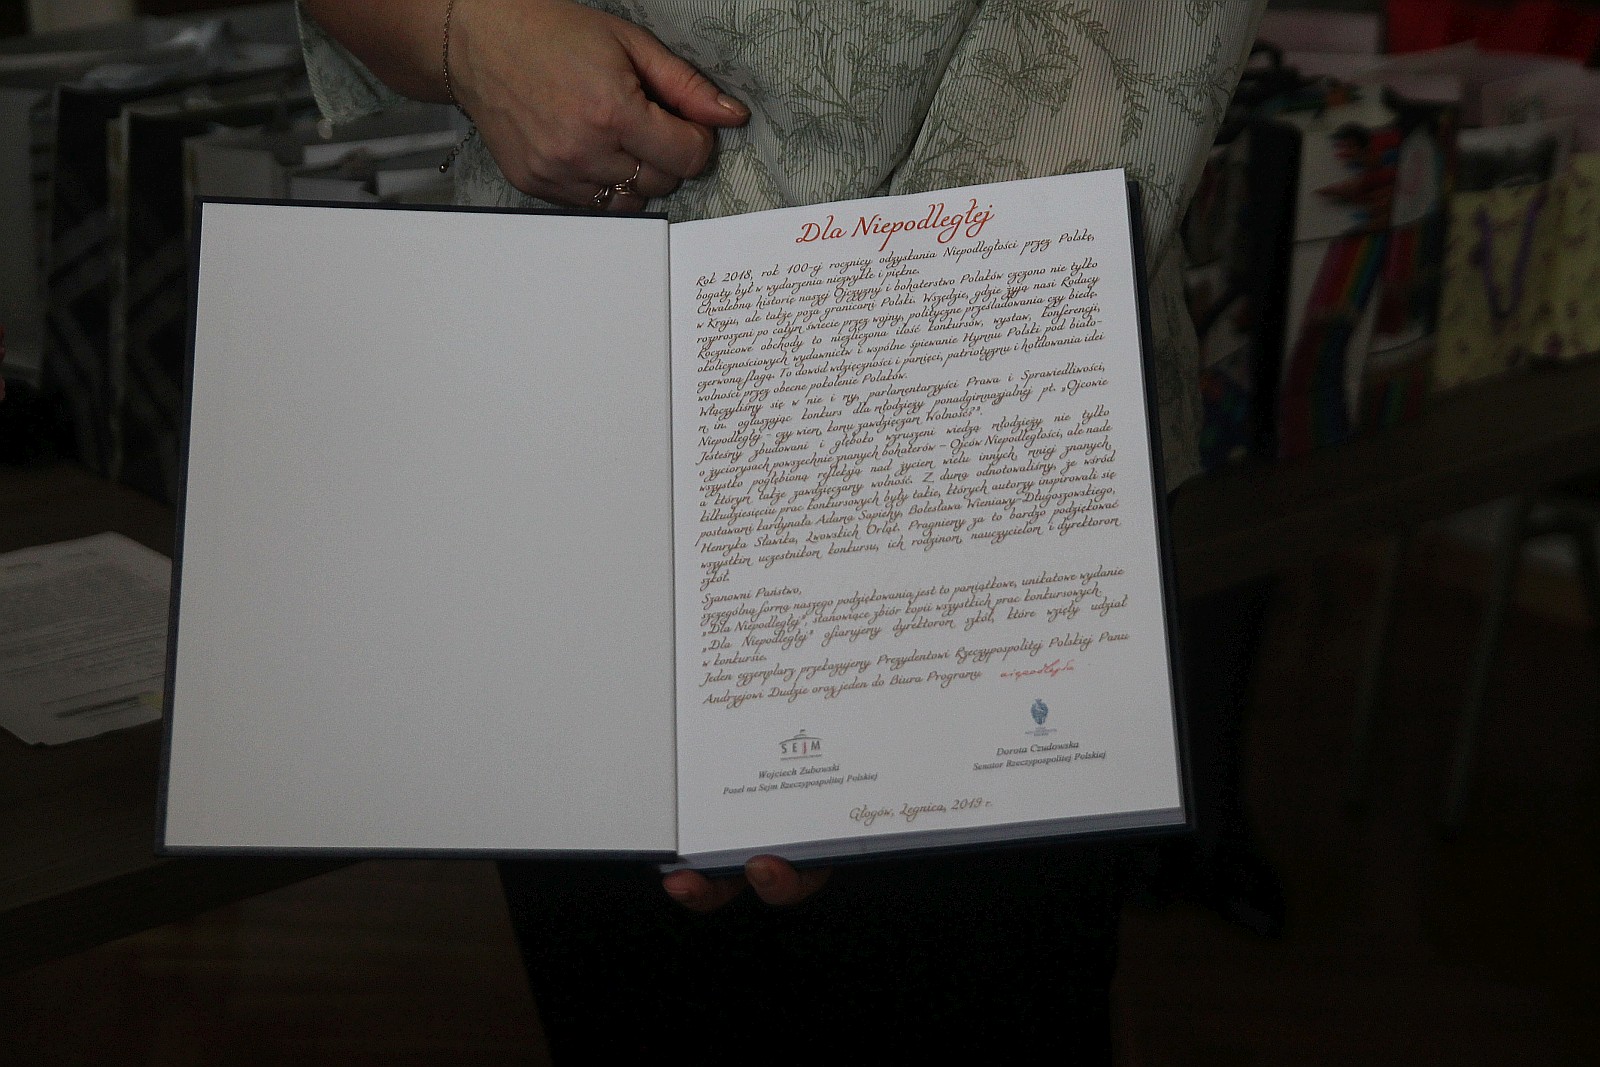 Dla Niepodległej
Rok 2018, rok 100-ej rocznicy odzyskania Niepodległości przez Polskę,
bogaty był w wydarzenia niezwykłe i piękne.
Chwalebną historię naszej Ojczyzny i bohaterstwo Polaków czczono nie tylko
w Kraju, ale także poza granicami Polski. Wszędzie, gdzie żyją nasi Rodacy
rozproszeni po całym świecie przez wojny, polityczne prześladowania czy biedę.
Rocznicowe obchody to niezliczona ilość konkursów, wystaw, konferencji,
okolicznościowych wydawnictw i wspólne śpiewanie Hymnu Polski pod biało-
czerwoną flagą. To dowód wdzięczności i pamięci, patriotyzmu i hołdowania idei
wolności przez obecne pokolenie Polaków.
Włączyliśmy się w nie i my, parlamentarzyści Prawa i Sprawiedliwości,
m. in. ogłaszając konkurs dla młodzieży ponadgimnazjalnej pt. „Ojcowie
Niepodległej - czy wiem, komu zawdzięczam Wolność?”.
Jesteśmy zbudowani i głęboko wzruszeni wiedzą młodzieży nie tylko
o życiorysach powszechnie znanych bohaterów – Ojców Niepodległości, ale nade
wszystko pogłębioną refleksją nad życiem wielu innych, mniej znanych,
a którym także zawdzięczamy wolność. Z dumą odnotowaliśmy, że wśród
kilkudziesięciu prac konkursowych były takie, których autorzy inspirowali się
postawami kardynała Adama Sapiehy, Bolesława Wieniawy-Długoszowskiego,
Henryka Sławika, Lwowskich Orląt. Pragniemy za to bardzo podziękować
wszystkim uczestnikom konkursu, ich rodzinom, nauczycielom i dyrektorom
szkół.
Szanowni Państwo,
szczególną formą naszego podziękowania jest to pamiątkowe, unikatowe wydanie
„Dla Niepodległej”, stanowiące zbiór kopii wszystkich prac konkursowych.
„Dla Niepodległej” ofiarujemy dyrektorom szkół, które wzięły udział
w konkursie.
Jeden egzemplarz przekazujemy Prezydentowi Rzeczypospolitej Polskiej Panu
Andrzejowi Dudzie oraz jeden do Biura Programu niepodległa
SEJM
Wojciech Zubowski
Poseł na Sejm Rzeczypospolitej Polskiej
Dorota Czudowska
Senator Rzeczypospolitej Polskiej
Głogów, Legnica, 2019 r.